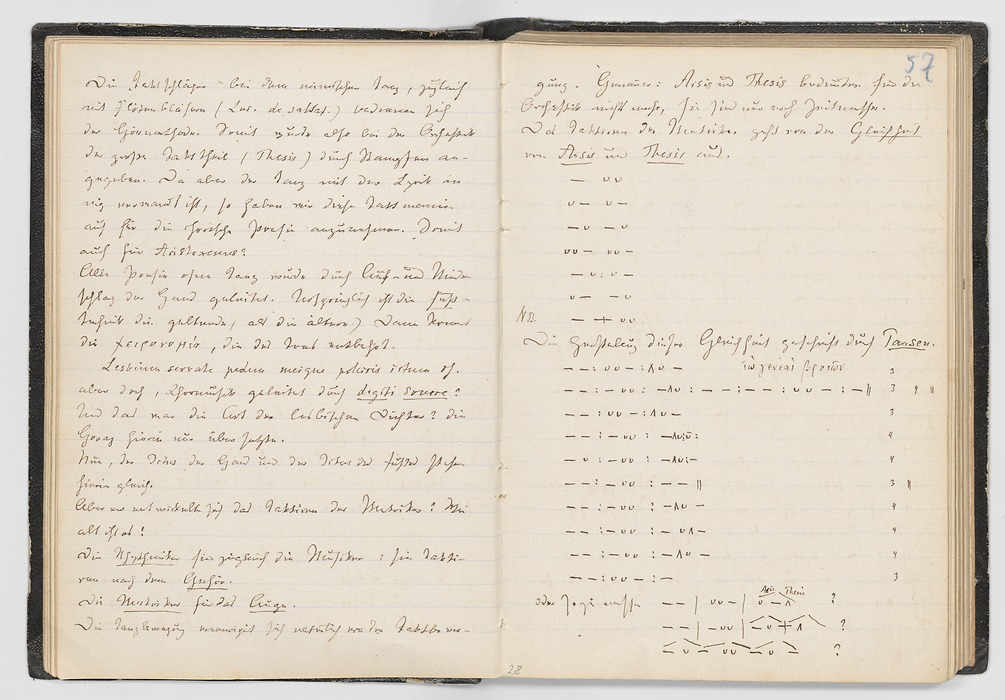 Die Taktschläger bei dem römischen Tanz, zugleich
mit Flötenbläsern (Luc. de saltat.) bedienen sich
der Somit wurde also bei der Orchestik
der große Takttheil (Thesis) durch Stampfen an-
gegeben. Da aber der Tanz mit der Lyrik in-
nig verwandt ist, so haben wir diese Taktmanier
auch für die chorische Poesie anzunehmen. Somit
auch für Aristoxenus?
Alle Poesie ohne Tanz wurde durch Auf- und Nieder-
schlag der Hand geleitet. Ursprünglich ist die Fuß-
technik die geltende, als die ältere) Dann kommt
die χειρονομία, die des Tons entbehrt.
Lesbium servate pedem meique pollicis ictum
aber doch, Chormusik geleitet durch digiti sonore?
Und das war die Art der lesbischen Dichter? die
Horaz hierin nur übersetzte.
Nun, der Ictus der Hand und der Ictus des Fußes stehen
hierin gleich.
Aber wo entwickelt sich das Taktiren der Metriker? Wie
alt ist es?
Die Rhythmiker sind zugleich die Musiker: sie takti-
ren nach dem Gehör.
Die Metriker für das Auge.
Die Tanzbewegung vereinigt sich natürlich mit der Taktbewe-
28
57
gung. Genauer: Arsis und Thesis bedeuten für die
Orchestik nichts mehr, sie sind nur noch Zeitmasse.
Das Taktiren der Metriker geht von der Gleichheit
von Arsis und Thesis aus.
— ∪∪
∪— ∪—
—∪ —∪
∪∪— ∪∪—
—∪:∪—
∪— —∪
NB. — + ∪∪
Die Herstellung dieser Gleichheit geschieht durch Pausen.
— — : ∪∪ — : Λ∪ — ἰὼ γενεαὶ βροτῶν 3
— ∪ : — ∪∪ : —Λ∪ : — ∪ — : — ∪ — : ∪∪ — : — ∪ — || 3 4 "
— — : ∪∪ — : Λ∪ — 3
— — : — ∪∪ : —Λ∪:∪: 4
— ∪ : — ∪∪ : —Λ∪:— 4
— ∪ : — ∪∪ : — — || 3 "
— — : — ∪∪ : —Λ∪ — 4
— — : — ∪∪ : ∪Λ — 4
— — : — ∪∪ : —Λ∪ — 4
— — : ∪∪ — : — 3
Arsis Thesis
oder — — | ∪∪ — | ∪ — Λ ?
— — | — ∪∪ | — ∪ + Λ ?
— ∪ — ∪∪ — ∪ — ?